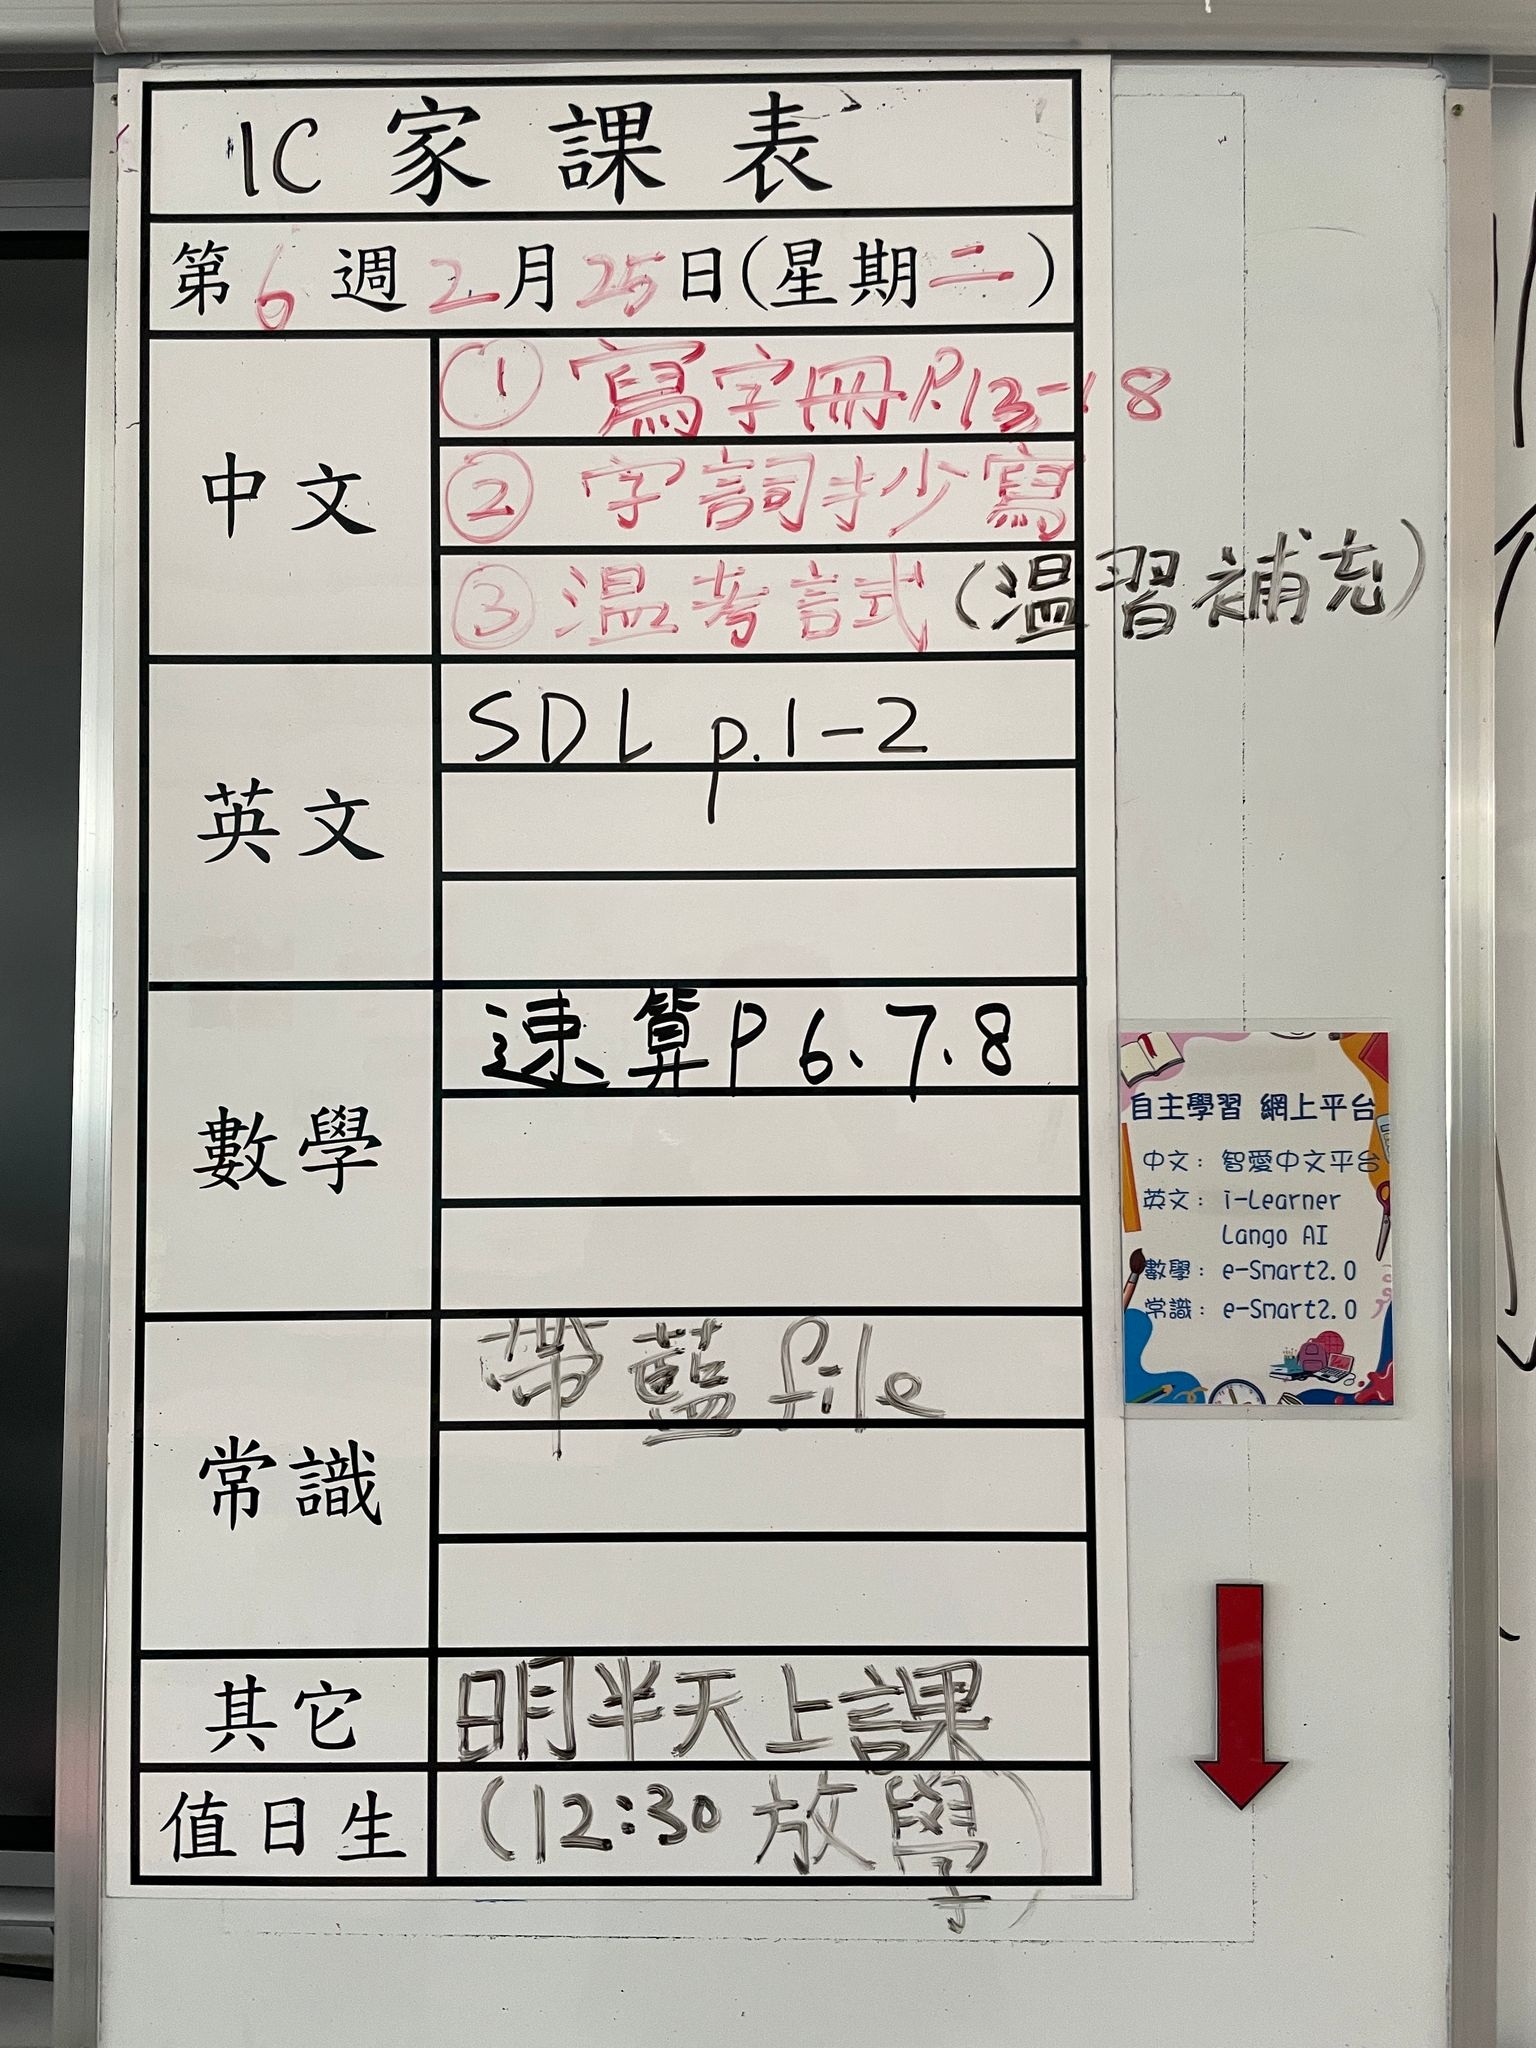 1C 家課表
第6週2月25日(星期二)
中文
① 寫字冊P.13-18
② 字詞抄寫
③ 温考試(温習補充)
英文
SDL p.1-2
數學
速算P 6、7、8
常識
帶藍 file
其它
明半天上課
值日生
(12:30 放學)
自主學習 網上平台
中文：智愛中文平台
英文：i-Learner
Lango AI
數學：e-Smart2.0
常識：e-Smart2.0